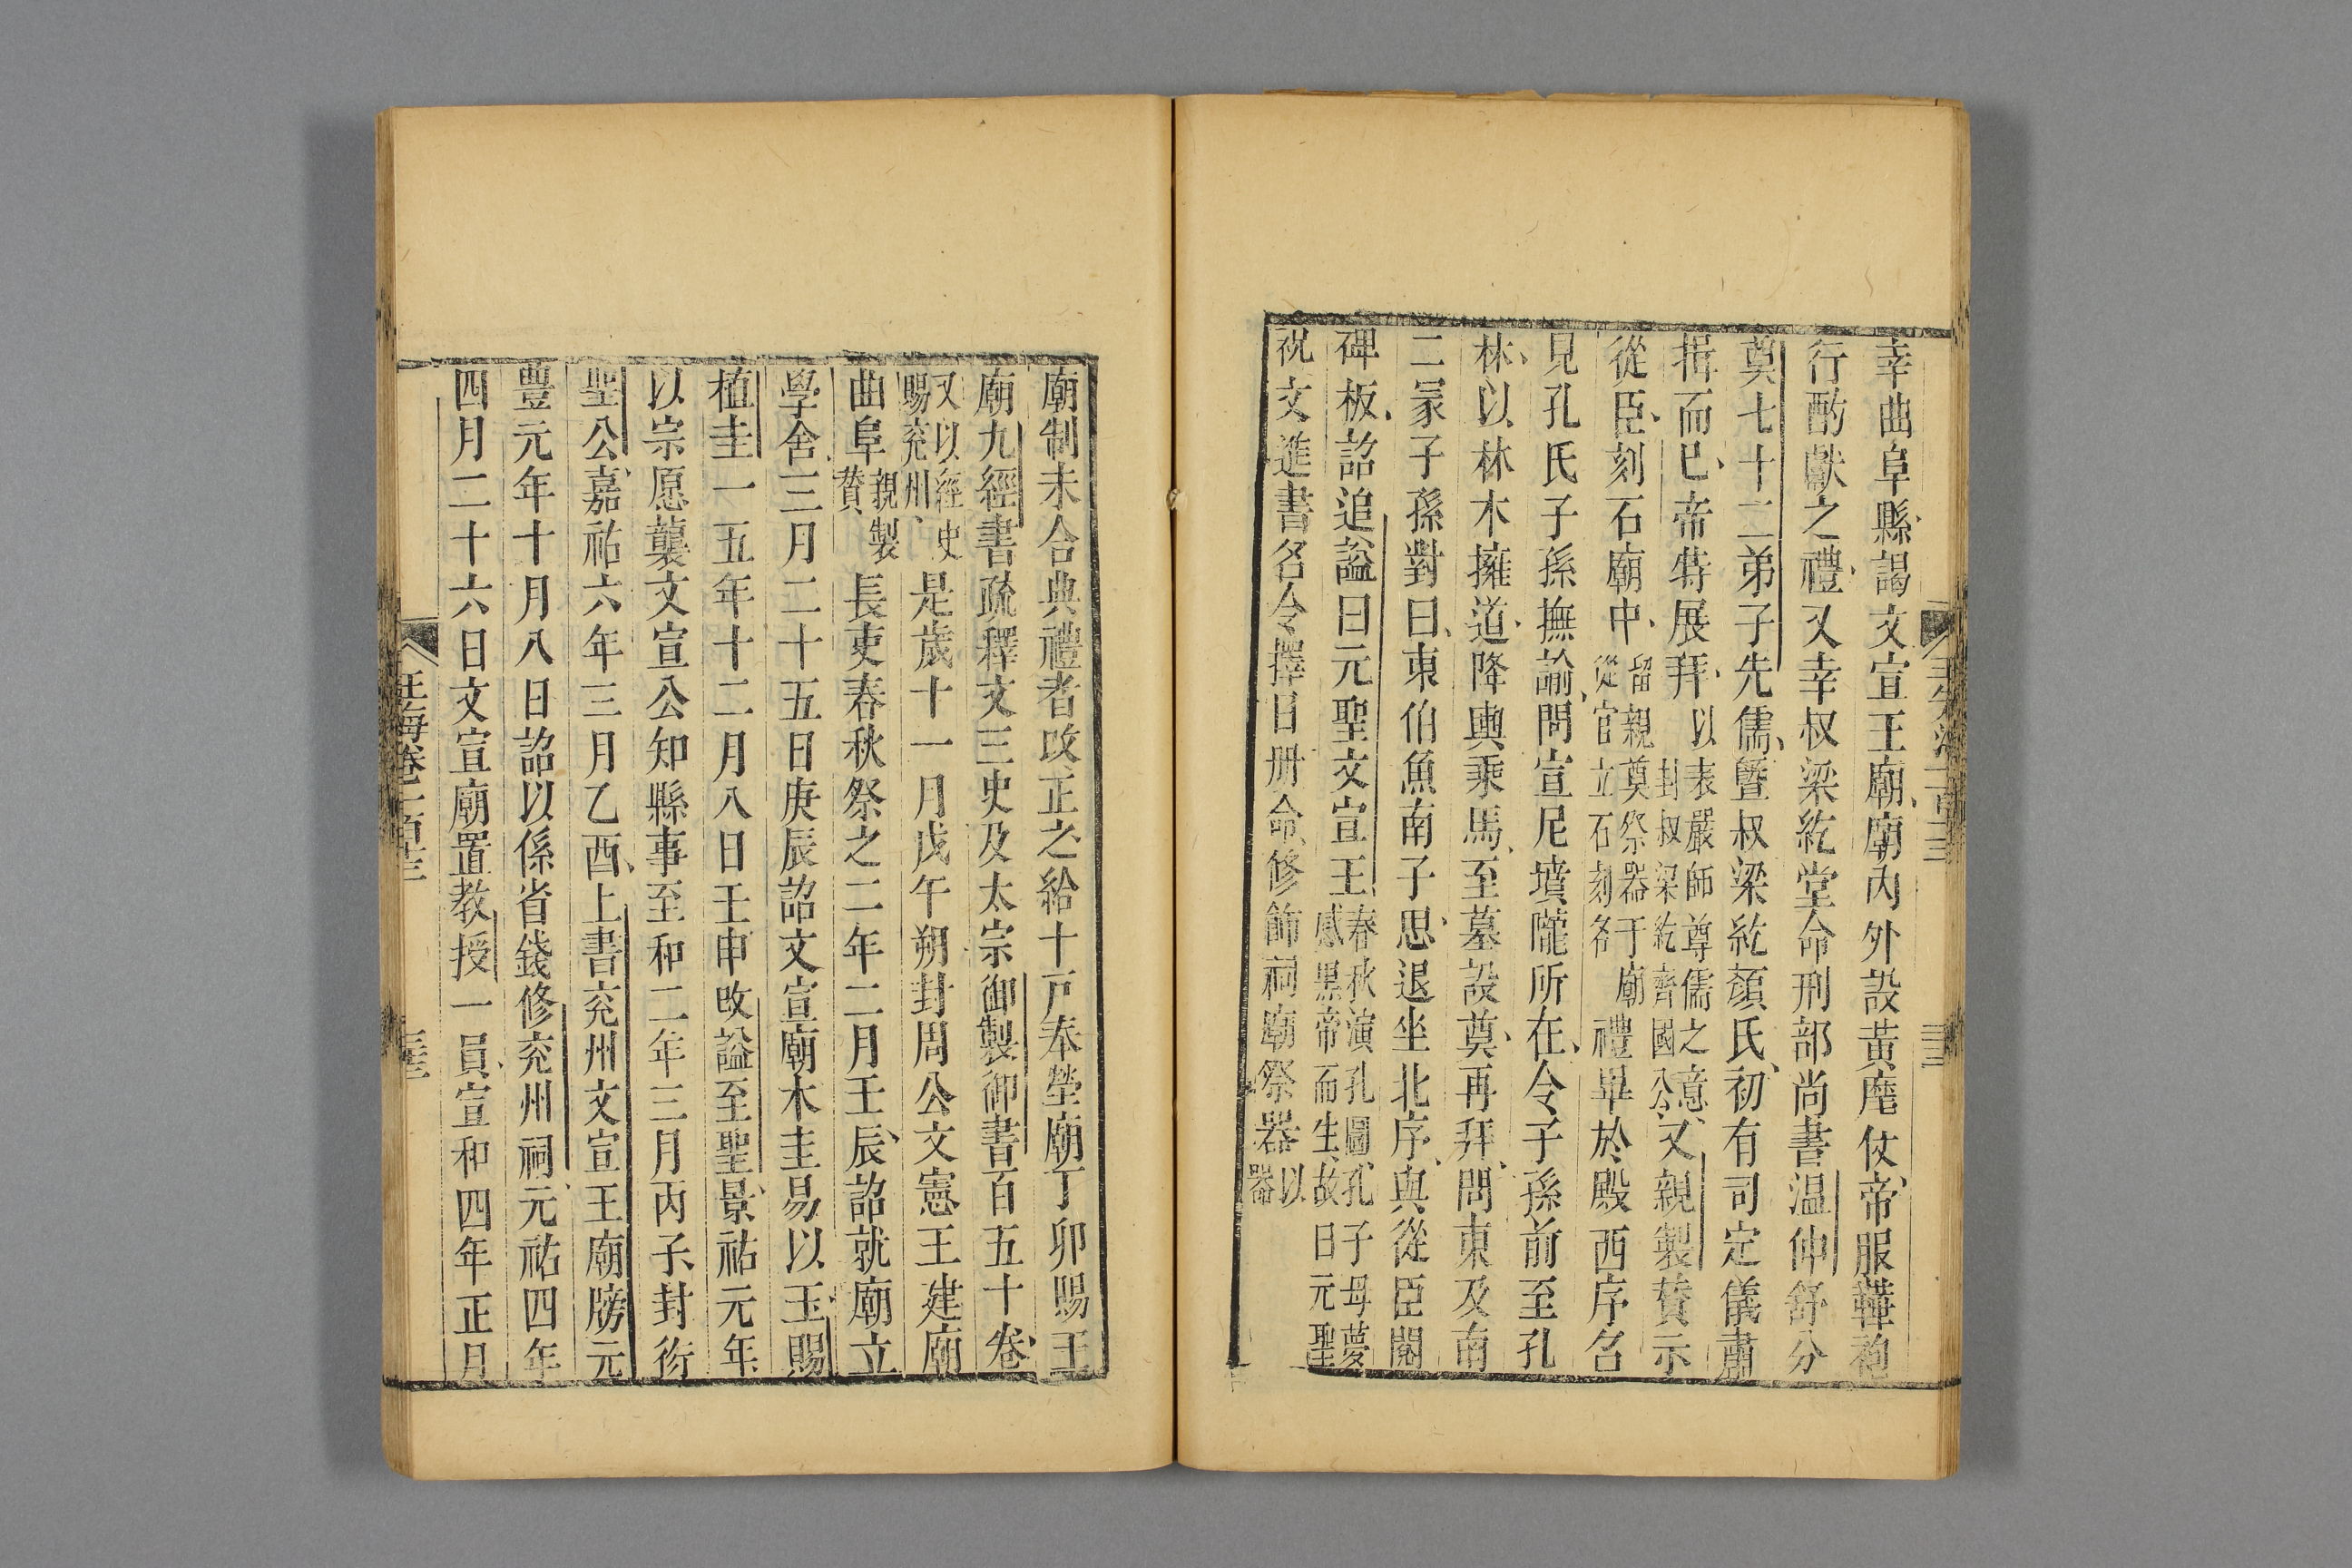 幸曲阜縣謁文宣王廟廟內外設黃麾仗帝服鞾袍
行酌獻之禮又幸叔梁紇堂命刑部尚書温仲舒分
奠七十二弟子先儒曁叔梁紇顏氏初有司定儀肅
揖而已帝特展拜以表嚴師尊儒之意封叔梁紇齊國公又親製贊示
從臣刻石廟中留親奠祭器于廟從官立石刻名禮畢於殿西序召
見孔氏子孫撫諭問宣尼墳隴所在令子孫前至孔
林以林木擁道降輿乘馬至墓設奠再拜問東及南
二冢子孫對曰東伯魚南子思退坐北序與從臣閱
碑板詔追謚曰元聖文宣王春秋演孔圖孔子母夢感黑帝而生故曰元聖
祝文進書名令擇日册命修飾祠廟祭器以器
廟制未合典禮者改正之給十戶奉塋廟丁卯賜王
廟九經書疏釋文三史及太宗御製御書百五十卷
又以經史賜兖州是歲十一月戊午朔封周公文憲王建廟
曲阜親製贊長吏春秋祭之二年二月壬辰詔就廟立
學舍三月二十五日庚辰詔文宣廟木圭易以玉賜
植圭一五年十二月八日壬申改謚至聖景祐元年
以宗愿襲文宣公知縣事至和二年三月丙子封衍
聖公嘉祐六年三月乙酉上書兖州文宣王廟牓元
豐元年十月八日詔以係省錢修兖州祠元祐四年
四月二十六日文宣廟置教授一員宣和四年正月
玉海卷一百十三